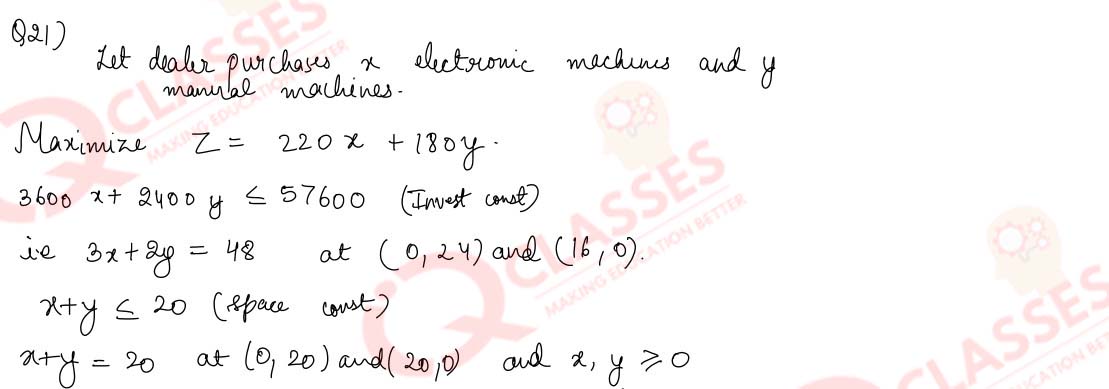 Q21)
Let dealer purchases x electronic machines and y
manual machines.
Maximize Z = 220x + 180y.
3600 x + 2400 y ≤ 57600 (Invest const)
i.e 3x+2y = 48 at (0, 24) and (16, 0).
x+y ≤ 20 (space const)
x+y = 20 at (0, 20) and (20,0) and x, y ≥ 0
CLASSES
MAKING EDUCATION BETTER
CLASSES
MAKING EDUCATION BETTER
CLASSES